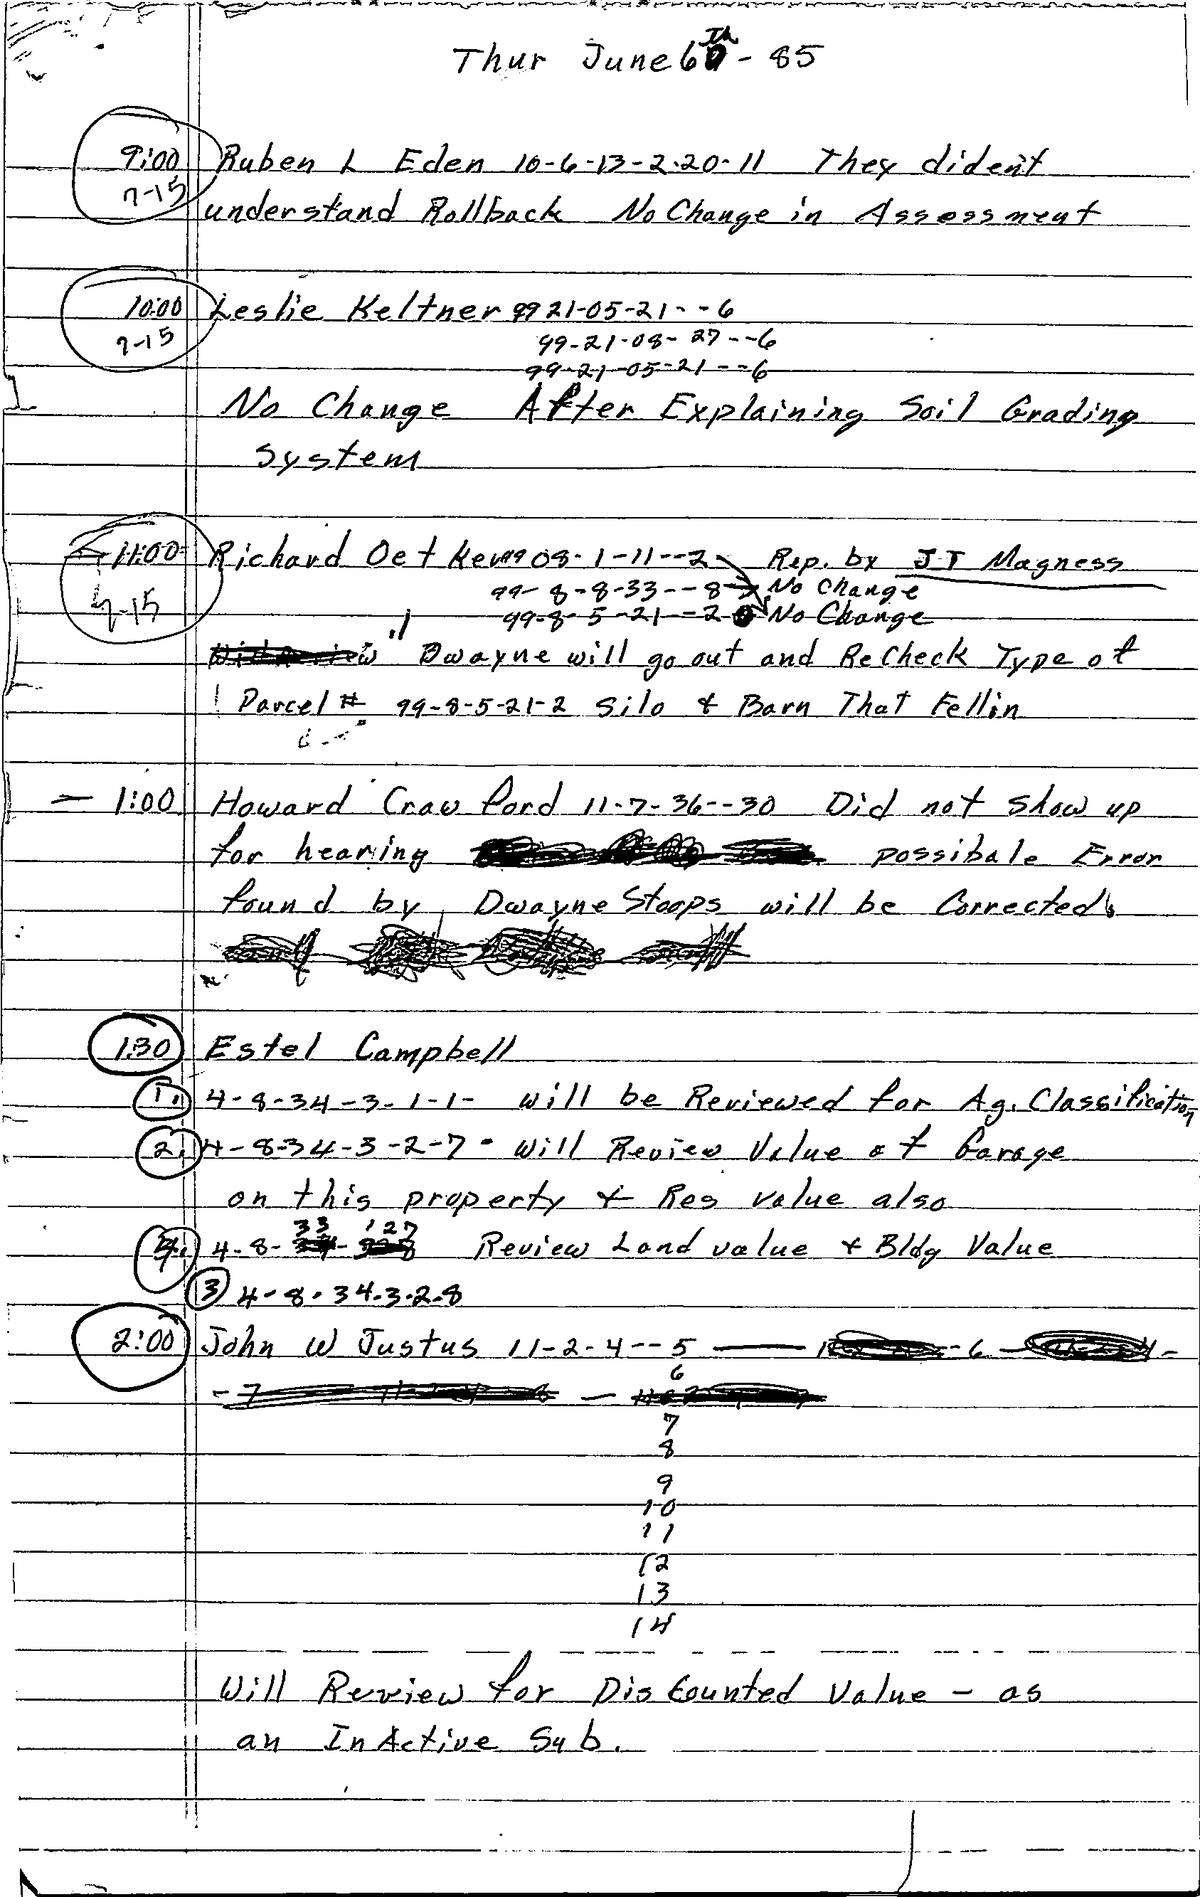 Thur June 6th - 85
9:00 Ruben L Eden 10-6-13-2-20-11 They dident
7-15
understand Rollback No Change in Assessment
10:00 Leslie Keltner 99 21-05-21--6
7-15 99-21-08-27--6
99-21-05-21--6
No Change After Explaining Soil Grading
System
11:00 Richard Oetker 99 08-1-11--2 Rep. by J T Magness
99-8-8-33--8 No Change
7-15 99-8-5-21--2 No Change
Dwayne will go out and ReCheck Type of
Parcel # 99-8-5-21-2 Silo & Barn That Fellin
- 1:00 Howard Crawford 11-7-36--30 Did not show up
for hearing possibale Error
found by Dwayne Stoops will be Corrected
1:30 Estel Campbell
1. 4-8-34-3-1-1- will be Reviewed for Ag. Classification
2. 4-8-34-3-2-7- will Review Value of Garage
on this property & Res value also
33 127
4. 4-8- Review Land value & Bldg Value
3 4-8-34-3-2-8
2:00 John W Justus 11-2-4--5
6
7
8
9
10
11
12
13
14
Will Review for Discounted Value - as
an InActive Sub.